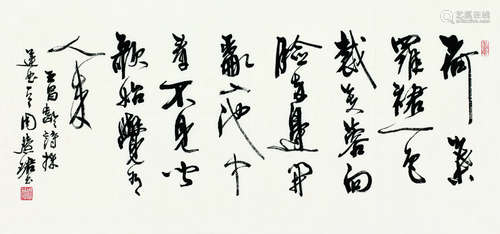 荷葉
羅裙一色
裁芙蓉向
臉兩邊開
亂入池中
看不見聞
歌始覺有
人來
王昌齡詩採
蓮曲 周慧珺